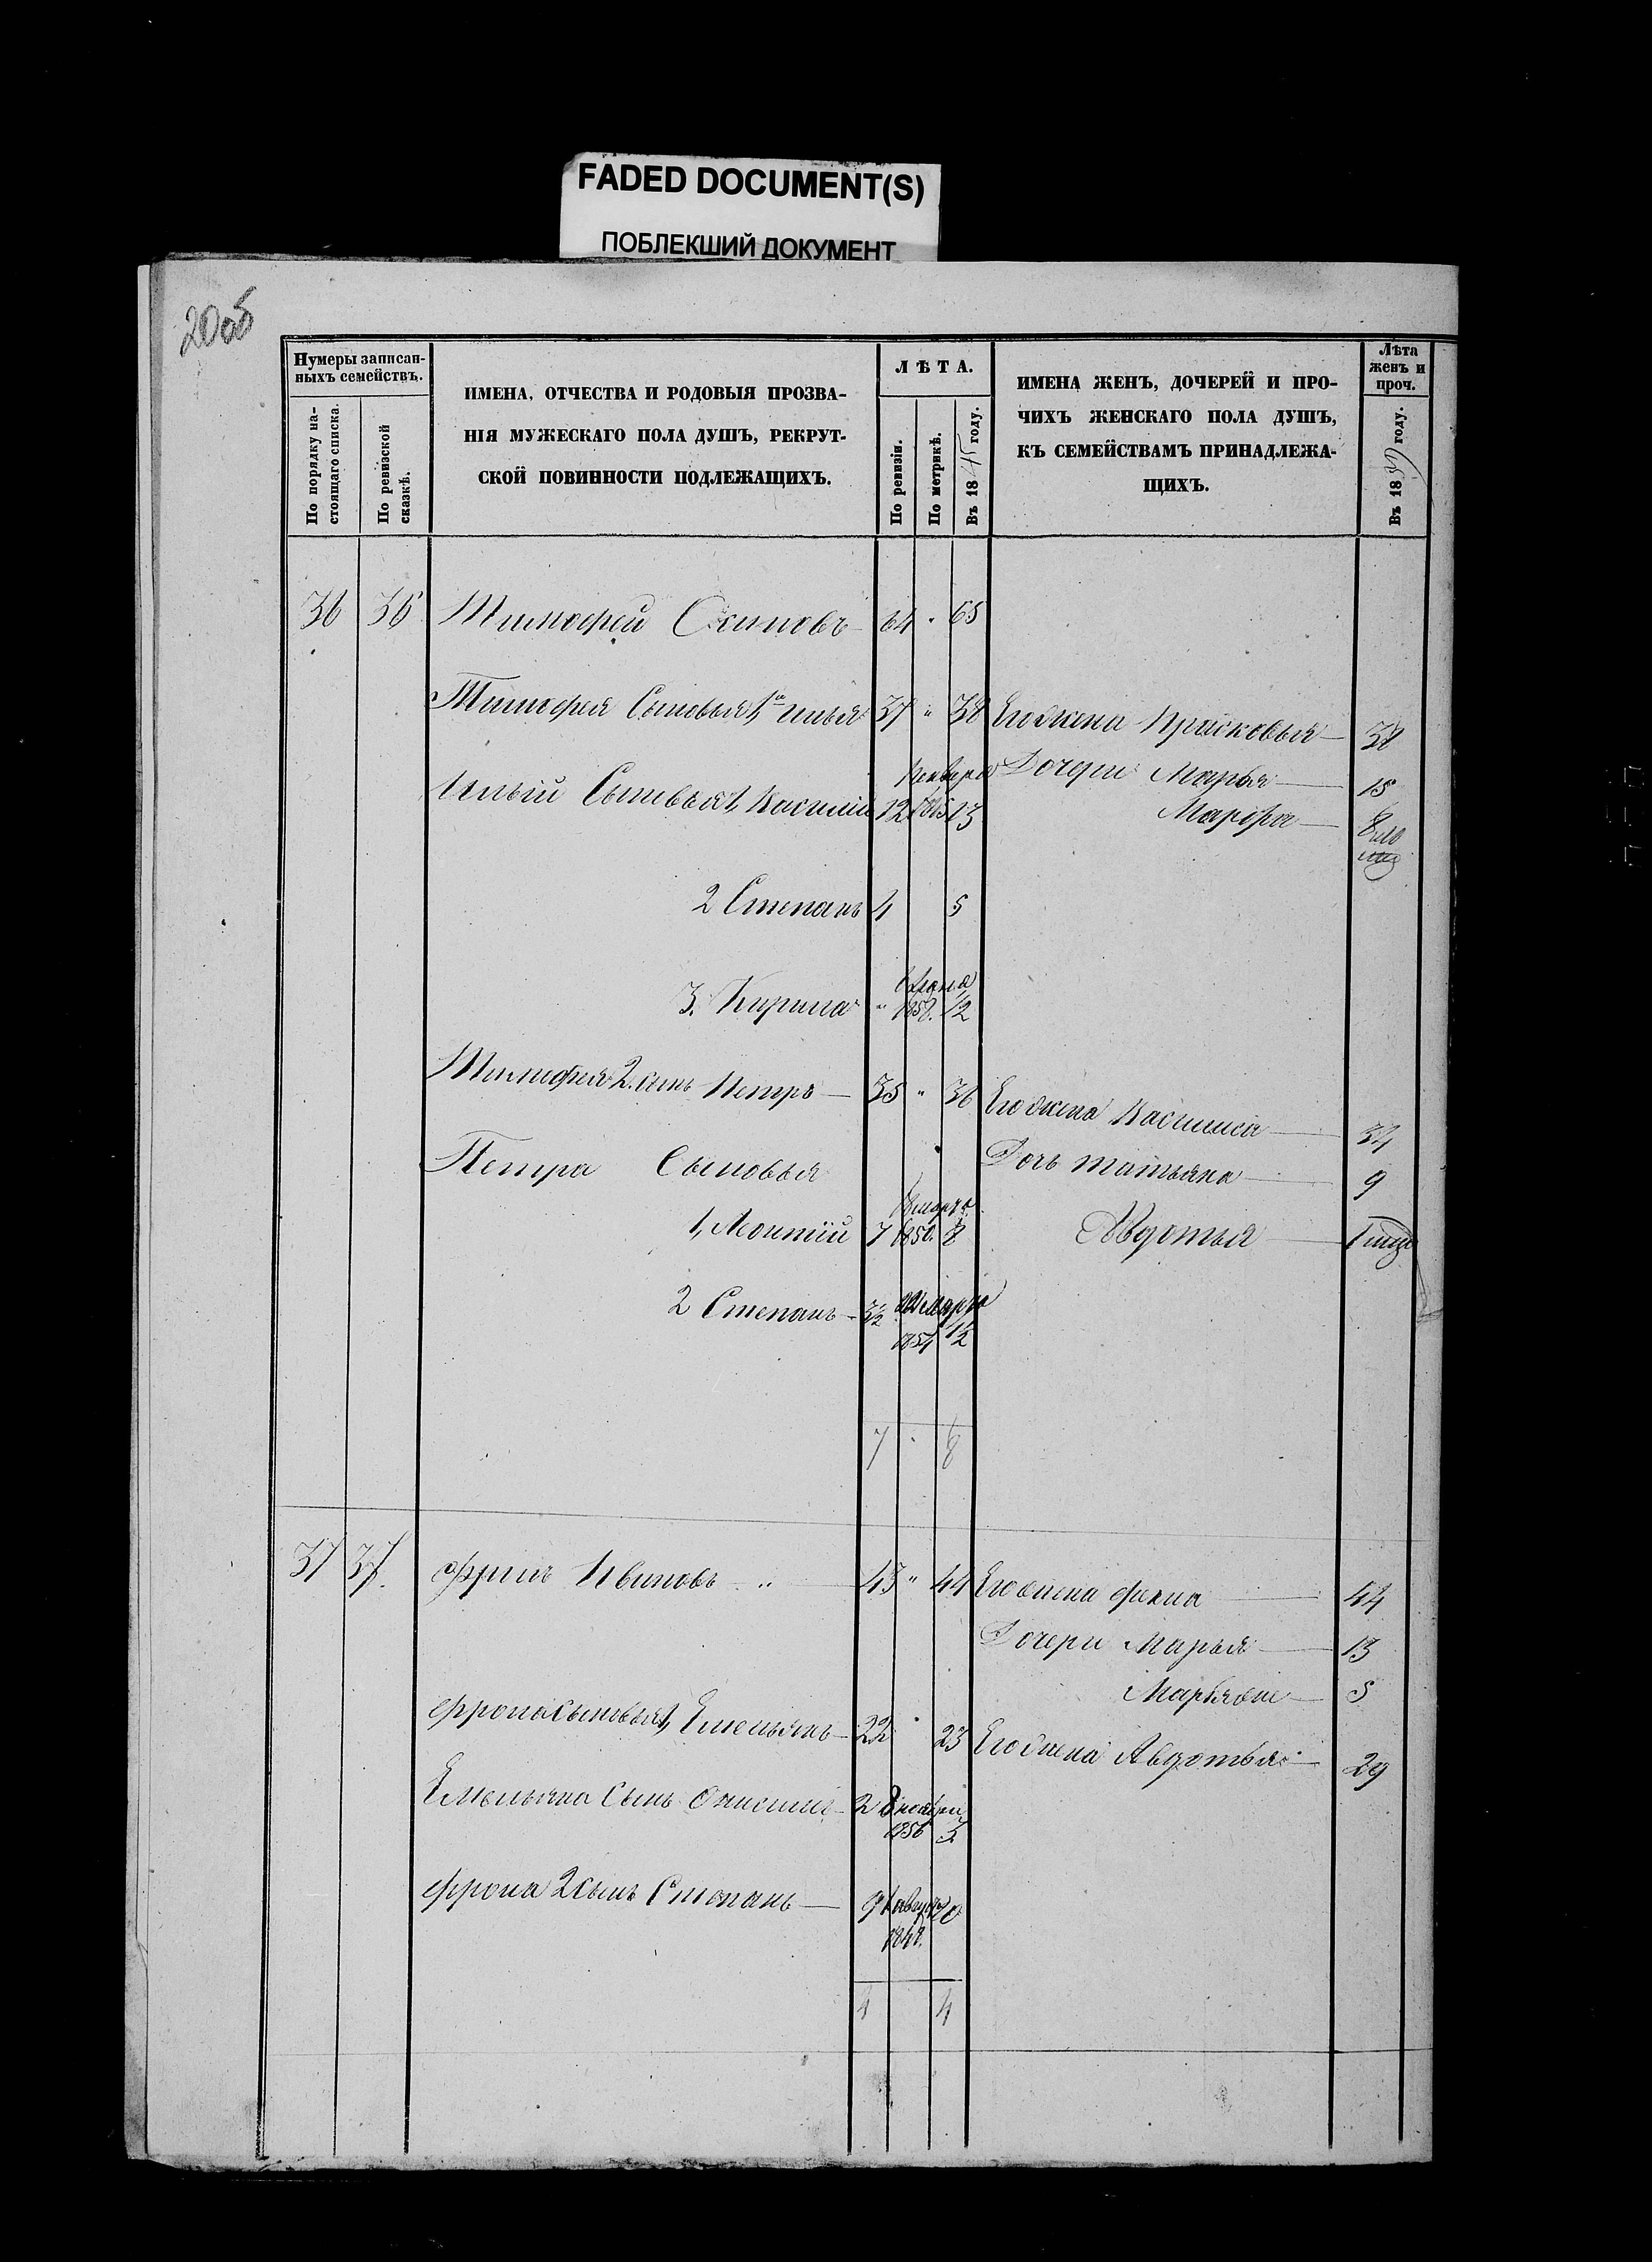 FADED DOCUMENT(S)
ПОБЛЕКШИЙ ДОКУМЕНТ
20об
Нумеры записан-
ныхъ семействъ.
По порядку на-
стоящаго списка.
По ревизской
сказкѣ.
ИМЕНА, ОТЧЕСТВА И РОДОВЫЯ ПРОЗВА-
НІЯ МУЖЕСКАГО ПОЛА ДУШЪ, РЕКРУТ-
СКОЙ ПОВИННОСТИ ПОДЛЕЖАЩИХЪ.
ЛѢТА.
По ревизіи.
По метрикѣ.
Въ 18 году.
ИМЕНА ЖЕНЪ, ДОЧЕРЕЙ И ПРО-
ЧИХЪ ЖЕНСКАГО ПОЛА ДУШЪ,
КЪ СЕМЕЙСТВАМЪ ПРИНАДЛЕЖА-
ЩИХЪ.
Лѣта
женъ и
проч.
Въ 1859 году.
36 36 Тимофей Осиповъ 64 " 65
Тимофея Сыновья 1й Илья 37 " 38 Его жена Прасковья 38
Дочери Марья 15
Ильи Сыновья 1, Василій 12 Января 1845 13
Марфа 8
2 Степанъ 4 5
3. Кирила " 1858. 1/2
Тимофея 2. сынъ Петръ 35 " 36 Его жена Василиса 34
Петра Сыновья
Дочь Татьяна 9
1, Леонтій 7 марта 1850. 8
Авдотья 1
2 Степанъ 3 1/2 марта 1854
7 " 8
37 37. Фролъ Ивановъ " 43 " 44 Его жена Фекла 44
Дочери Марья 13
5
Фрола сыновья 1, Емельянъ 22 " 23 Его жена Авдотья 29
Емельяна Сынъ Онисимъ 2 8 ноября 1856 3
Фрола 2 сынъ Степанъ 9 1848.
4 4